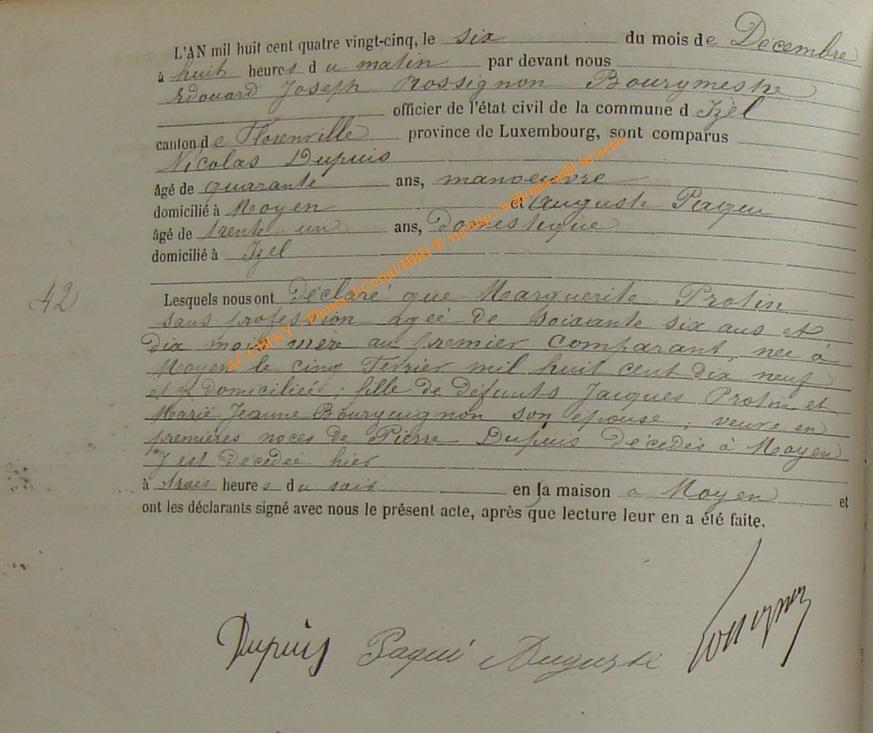 L'AN mil huit cent quatre vingt-cinq, le six du mois de Décembre
à huit heures du matin par devant nous
Edouard Joseph Rossignon Bourgmestre
officier de l'état civil de la commune d Izel
canton de Florenville province de Luxembourg, sont comparus
Nicolas Dupuis
âgé de quarante ans, manoeuvre
domicilié à Moyen et Auguste Paqui
âgé de trente un ans, Domestique
domicilié à Izel
42
Lesquels nous ont Déclaré que Marguerite Protin
sans profession agée de soixante six ans et
dix mois mère au premier comparant, née à
Moyen le cinq Fevrier mil huit cent dix neuf
et y domiciliée, fille de défunts Jacques Protin et
Marie Jeanne Bourguignon son épouse, veuve en
premières noces de Pierre Dupuis décédés à Moyen
y est décédée hier
à trois heures du soir en la maison à Moyen et
ont les déclarants signé avec nous le présent acte, après que lecture leur en a été faite.
Dupuis Paqui Auguste Rossignon